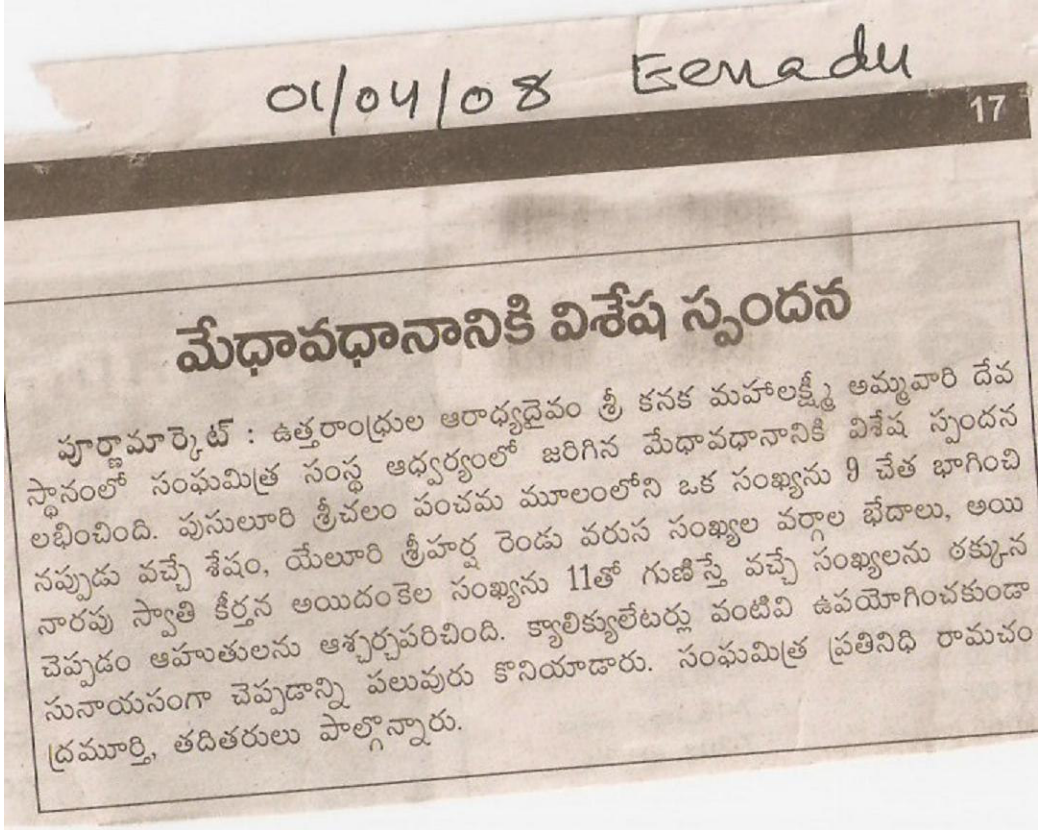 01/04/08 Eenadu
17
మేధావధానానికి విశేష స్పందన
పూర్ణామార్కెట్ : ఉత్తరాంధ్రుల ఆరాధ్యదైవం శ్రీ కనక మహాలక్ష్మీ అమ్మవారి దేవ
స్థానంలో సంఘమిత్ర సంస్థ ఆధ్వర్యంలో జరిగిన మేధావధానానికి విశేష స్పందన
లభించింది. పుసులూరి శ్రీచలం పంచమ మూలంలోని ఒక సంఖ్యను 9 చేత భాగించి
నప్పుడు వచ్చే శేషం, యేలూరి శ్రీహర్ష రెండు వరుస సంఖ్యల వర్గాల భేదాలు, అయి
నారపు స్వాతి కీర్తన అయిదంకెల సంఖ్యను 11తో గుణిస్తే వచ్చే సంఖ్యలను ఠక్కున
చెప్పడం ఆహుతులను ఆశ్చర్చపరిచింది. క్యాలిక్యులేటర్లు వంటివి ఉపయోగించకుండా
సునాయసంగా చెప్పడాన్ని పలువురు కొనియాడారు. సంఘమిత్ర ప్రతినిధి రామచం
ద్రమూర్తి, తదితరులు పాల్గొన్నారు.